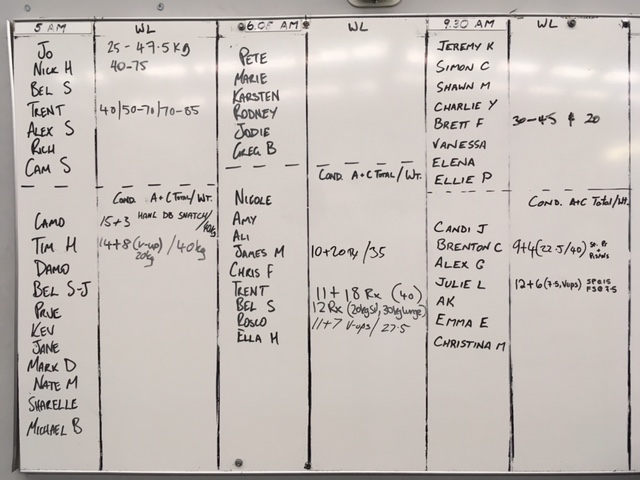 5 AM WL
JO 25-47.5Kg
NICK H 40-75
BEL S
TRENT 40/50-70/70-85
ALEX S
RICH
CAM S
COND. A+C TOTAL/WT.
CAMO 15+3 HANL DB SNATCH/
TIM H 14+8 (V-up) /40kg
20kg
DAMO
BEL S-J
PRUE
KEV
JANE
MARK D
NATE M
SHARELLE
MICHAEL B
6.05 AM WL
PETE
MARIE
KARSTEN
RODNEY
JODIE
GREG B
COND. A+C TOTAL/WT.
NICOLE
AMY
ALI
JAMES M 10+20 Rx/35
CHRIS F
TRENT 11+18 Rx (40)
BEL S 12 Rx (20kg SI, 30kg lunge)
ROSCO 11+7 V-ups/27.5
ELLA H
9.30 AM WL
JEREMY K
SIMON C
SHAWN M
CHARLIE Y
BRETT F 30-45 & 20
VANESSA
ELENA
ELLIE P
COND. A+C TOTAL/Wt.
CANDI J
BRENTON C 9+4 (22.5/40)
ALEX G
JULIE L 12+6 (7.5, Vups)
AK
EMMA E
CHRISTINA M